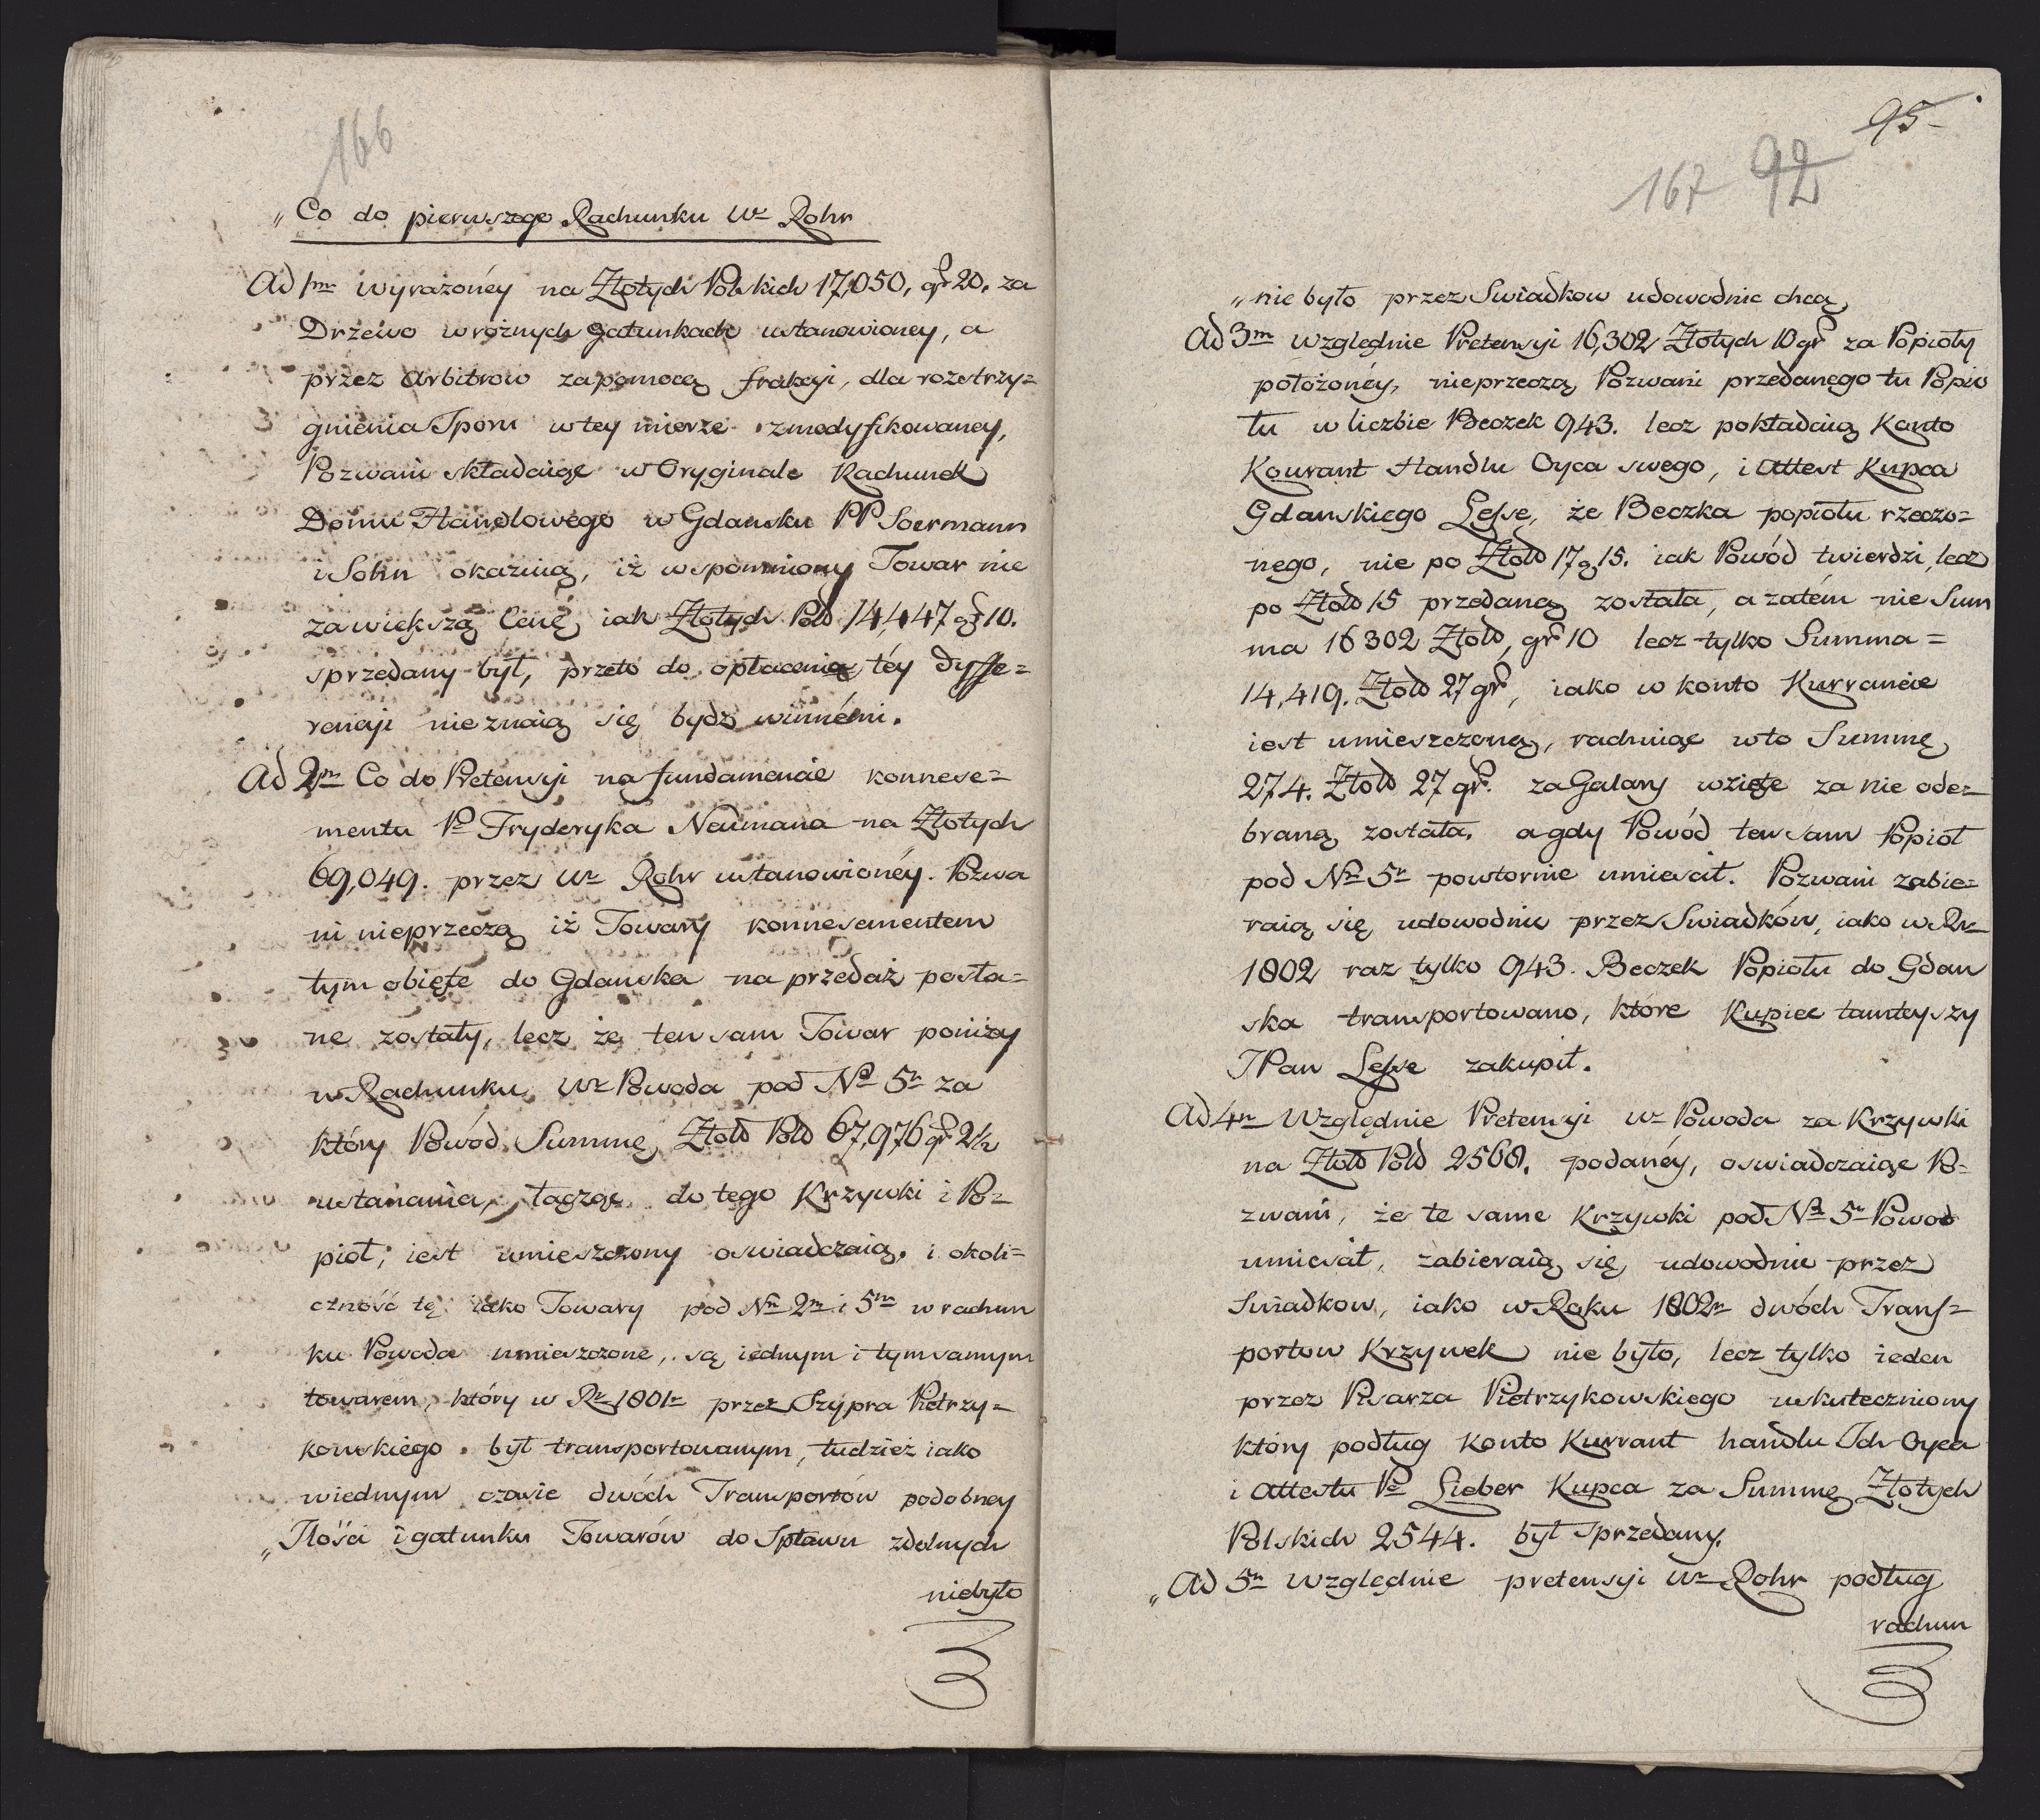 166
„Co do pierwszego Rachunku Wº Rohr
Ad 1m wyrażonéy na Złotych Polskich 17,050, gr 20. za
Drzewo w roznych gatunkach ustanowioney, a
przez Arbitrow zapomocą frakcyi, dla rozstrzy=
gnienia Sporu w tey mierze zmodyfikowaney,
Pozwani składaiąc w Oryginale Rachunek
Domu Handlowego w Gdansku PP Soermann
i Sohn okazuią, iż wspomniony Towar nie
za większą Cenę iak Złotych Pol 14,447 gr 10.
sprzedany był, przeto do opłacenia téy dyffe=
rencyi nie znaią się bydź winnémi.
Ad 2m Co do Pretensyi na fundamencie konnese=
mentu Pº Fryderyka Neumana na Złotych
69,049. przez Wº Rohr ustanowionéy. Pozwa
ni nieprzeczą iż Towary konnesementem
tym obięte do Gdanska na przedaż posła=
ne zostały, lecz że ten sam Towar poniży
w Rachunku Wº Powoda pod Nº 5m za
który Powód Summę Złotd Pold 67,976 gr 2½
ustanawia, łącząc do tego Krzywki i Po=
piół; iest umieszczony oswiadczaią, i okoli=
czność tę iako Towary pod Nm 2m i 5m w rachun
ku Powoda umieszczone, są iednym i tym samym
towarem, który w Rº 1801m przez Szypra Pietrzy=
kowskiego był transportowanym, tudzież iako
w iednym czasie dwóch Transportów podobney
„Jlości i gatunku Towarów do Spławu zdolnych
niebyło
95
167 92
„nie było przez Swiadkow udowodnic chcą
Ad 3m względnie Pretensyi 16,302 Złotych 10 gr za Popioły
położonéy, nieprzeczą Pozwani przedanego tu Popio
łu w liczbie Beczek 943. lecz pokładaią Konto
Kourant Handlu Oyca swego, i Attest Kupca
Gdanskiego Lesse, że Beczka popiołu rzeczo=
nego, nie po Złotd 17 g 15. iak Powód twierdzi, lecz
po Złotd 15 przedaną została, a zatém nie Sum
ma 16302 Złotd, gr 10 lecz tylko Summa =
14,419. Złotd 27 gr, iako w konto Kurrancie
iest umieszczoną, rachuiąc w to Summę
274. Złotd 27 gr. za Galary wzięte za nie ode=
braną została. a gdy Powód ten sam Popiół
pod Nº 5m powtornie umieścił. Pozwani zabie=
raią się udowodnic przez Swiadków, iako w Rº
1802 raz tylko 943. Beczek Popiołu do Gdan
ska transportowano, które Kupiec tamteyszy
JPan Lesse zakupił.
Ad 4m Względnie Pretensyi Wº Powoda za Krzywki
na Złotd Pold 2568. podanéy, oswiadczaiąc Po=
zwani, że te same Krzywki pod Nº 5m Powod
umieścił, zabieraią się udowodnic przez
Swiadkow, iako w Roku 1802m dwóch Trans=
portow Krzywek nie było, lecz tylko ieden
przez Pisarza Pietrzykowskiego uskuteczniony
który podług Konto Kurrant handlu Jch Oyca
i Attestu Pº Lieber Kupca za Summę Złotych
Polskich 2544. był sprzedany.
„Ad 5m względnie pretensyi Wº Rohr podług
rachun